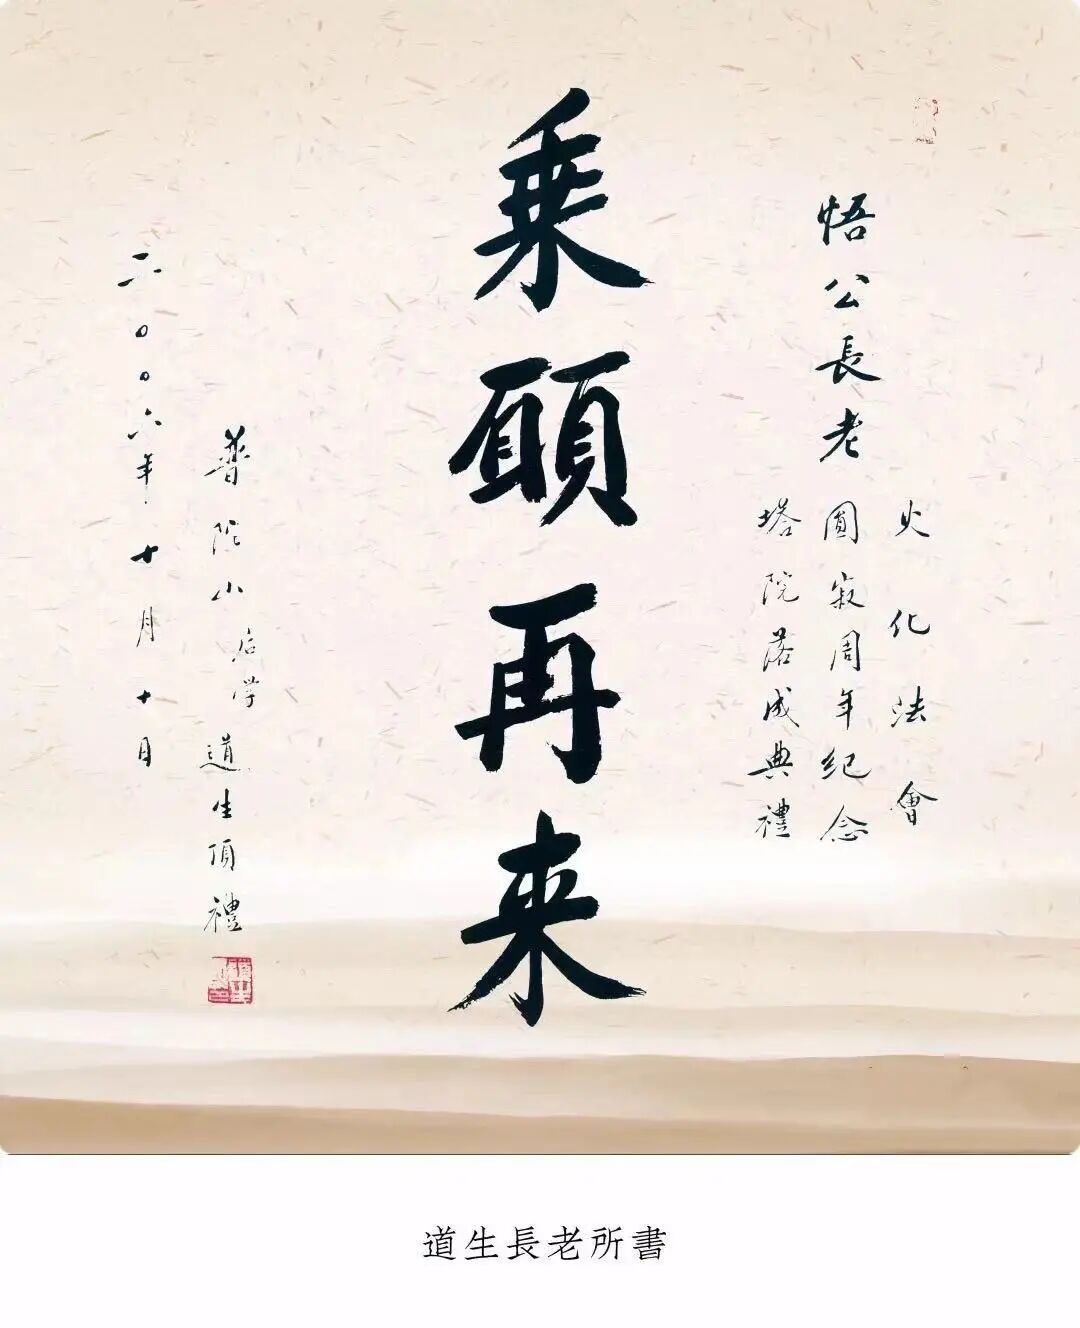 火化法會
悟公長老圓寂周年纪念
塔院落成典禮
乗願再来
普陀山后学道生頂禮
二〇〇六年十月十日
道生長老所書